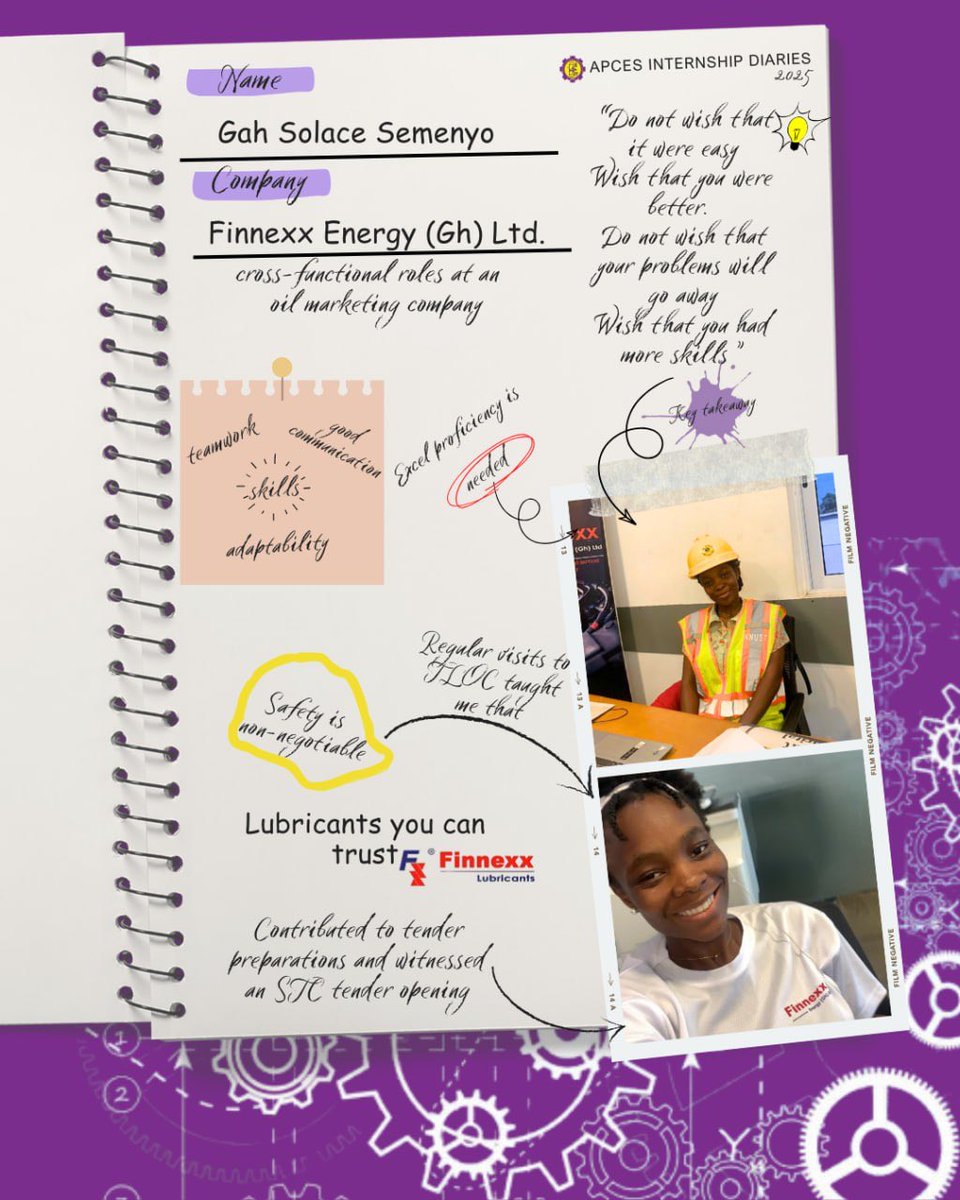 APCES INTERNSHIP DIARIES
2025
Name
Gah Solace Semenyo
Company
Finnexx Energy (Gh) Ltd.
cross-functional roles at an
oil marketing company
"Do not wish that
it were easy
Wish that you were
better.
Do not wish that
your problems will
go away
Wish that you had
more skills"
Key takeaway
teamwork
good
communication
skills
adaptability
Excel proficiency is
needed
xx
(Gh) Ltd
KNUST
FILM NEGATIVE
13
13 A
Regular visits to
TLOC taught
me that
Safety is
non-negotiable
FILM NEGATIVE
14
Lubricants you can
trust
Fx® Finnexx
Lubricants
Finnexx
Contributed to tender
preparations and witnessed
an STC tender opening
FILM NEGATIVE
14 A
1
2